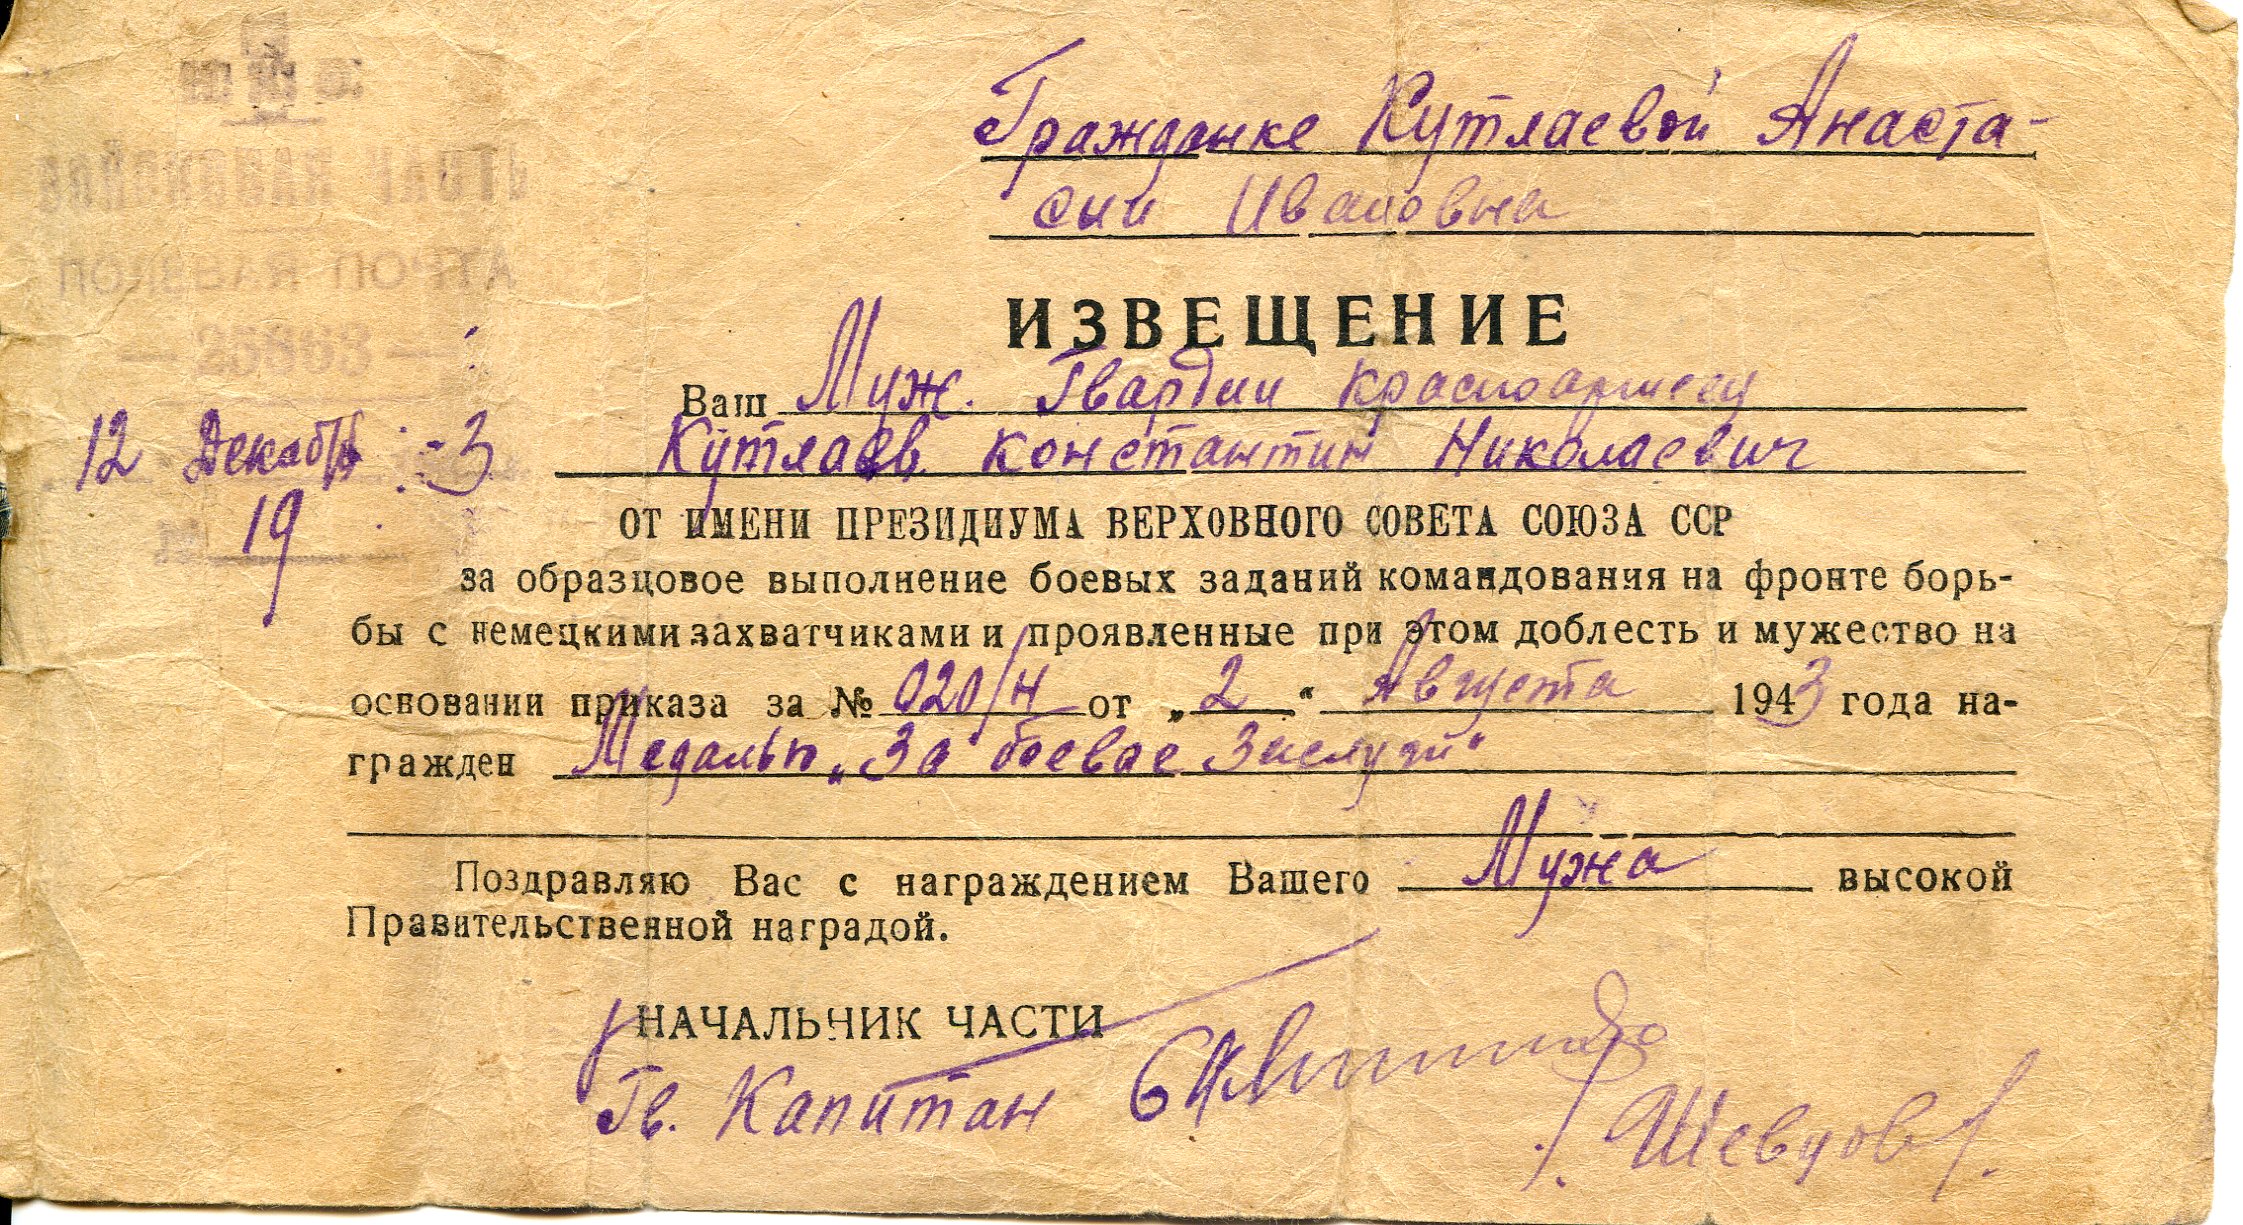 Гражданке Кутлаевой Анаста-
сии Ивановна
ПОЛЕВАЯ ПОЧТА
— 25863 —
ИЗВЕЩЕНИЕ
Ваш Муж. Гвардии красноармеец
12 Декабря 3
Кутлаев Константин Николаевич
19
ОТ ИМЕНИ ПРЕЗИДИУМА ВЕРХОВНОГО СОВЕТА СОЮЗА ССР
за образцовое выполнение боевых заданий командования на фронте борь-
бы с немецкими захватчиками и проявленные при этом доблесть и мужество на
основании приказа за № 020/н от „2“ Августа 1943 года на-
гражден Медалью „За боевое Заслуги“
Поздравляю Вас с награждением Вашего Мужа высокой
Правительственной наградой.
НАЧАЛЬНИК ЧАСТИ
Гв. Капитан
/Шевцов/.